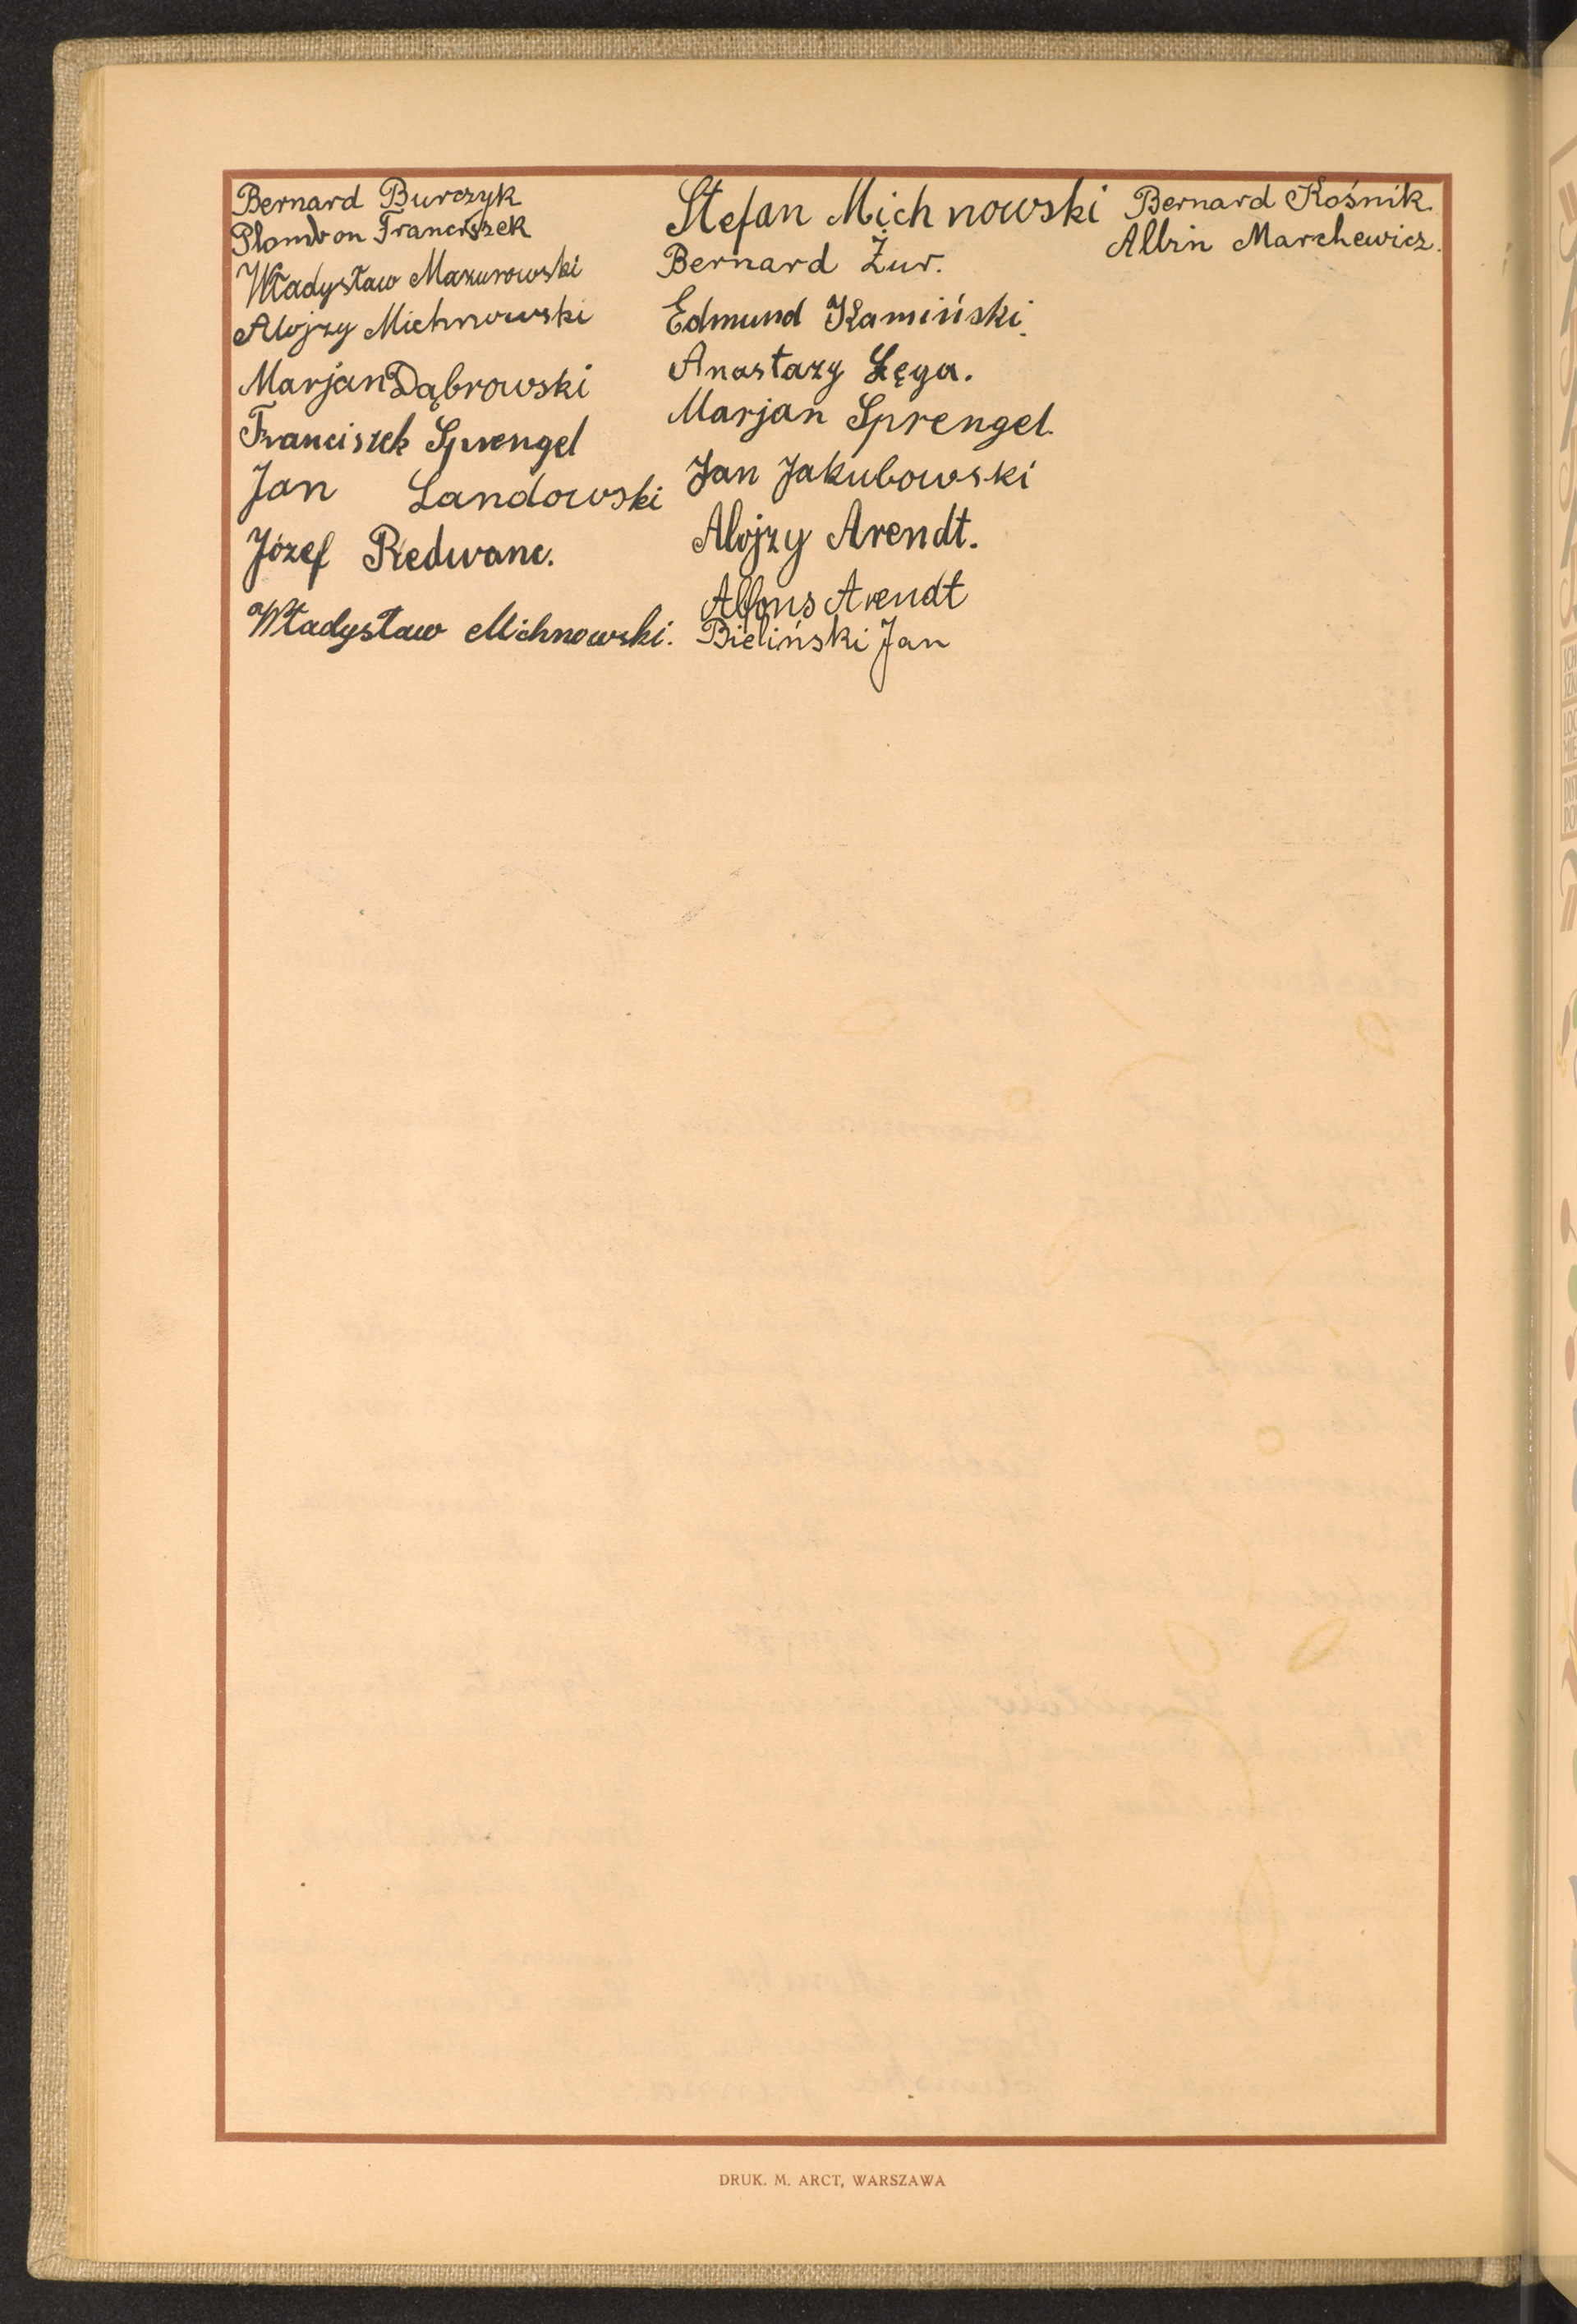 Bernard Burczyk
Plombon Franciszek
Władysław Mazurowski
Alojzy Michnowski
Marjan Dąbrowski
Franciszek Sprengel
Jan Landowski
Józef Redwanc.
Władysław Michnowski.
Stefan Michnowski
Bernard Żur.
Edmund Kamiński.
Anastazy Łęga.
Marjan Sprengel.
Jan Jakubowski
Alojzy Arendt.
Alfons Arendt
Bieliński Jan
Bernard Kośnik.
Albin Marchewicz.
DRUK. M. ARCT, WARSZAWA